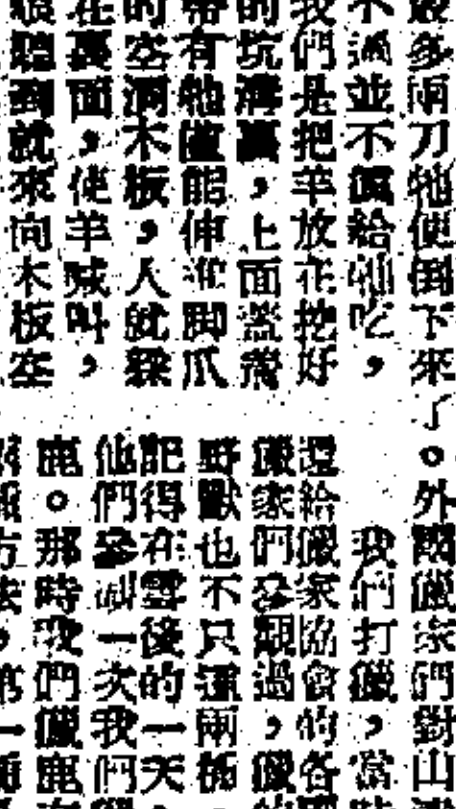 多兩刀牠便倒下來了。外國獵家們對山
不過並不真給牠吃,
我們是把羊放在挖好
的坑溝裏,上面蓋着
帶有牠僅能伸進脚爪
的空洞木板,人就躱
在裏面,使羊喊叫,
狼聽到就來向木板塞
我們打獵,當
還給獵家協會的各
獵家們參觀過,獵
野獸也不只這兩
記得在雪後的一天
他們參加一次我們
鹿。那時我們獵鹿